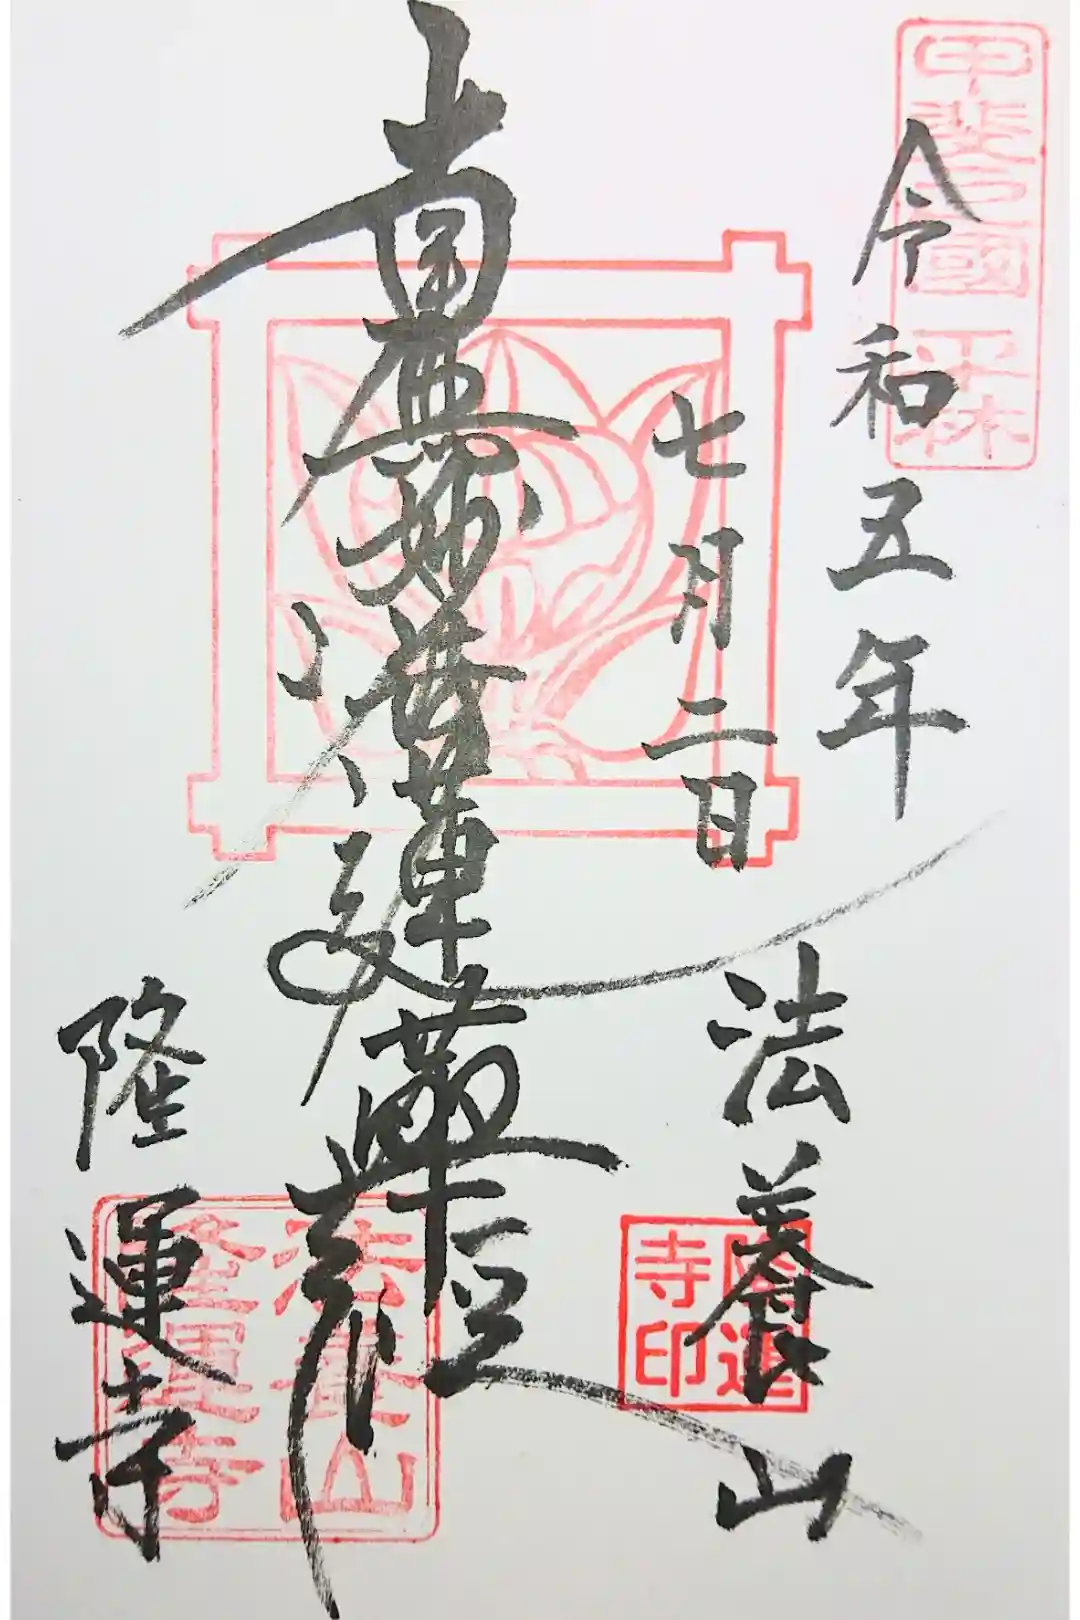 甲斐之國 平林
令和五年
七月二日
法養山
隆運寺印
南無妙法蓮華経
法養山
隆運寺
隆運寺